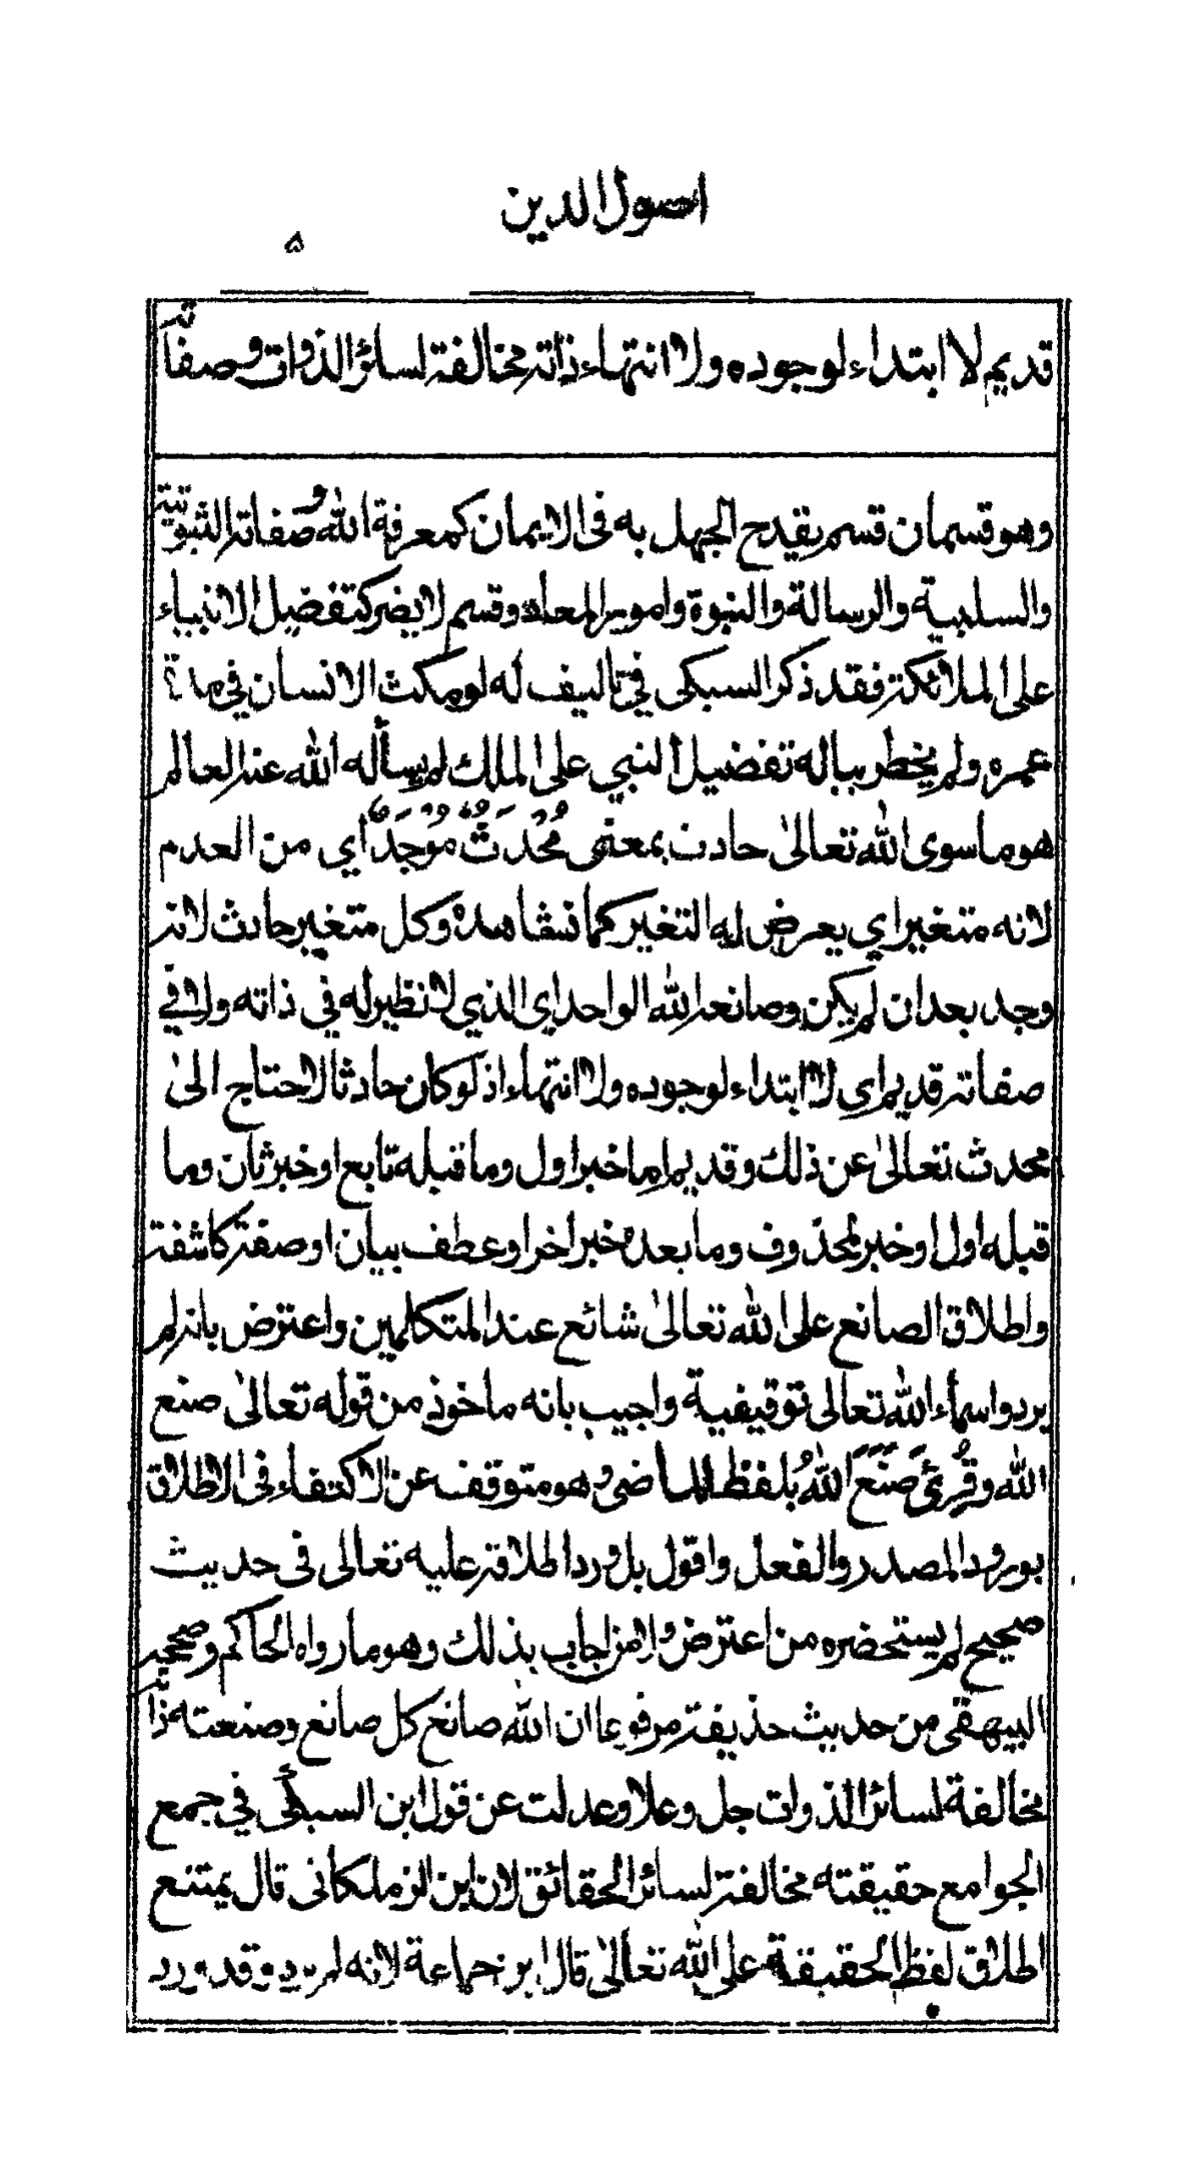 اصول الدين
٥
قديم لا ابتداء لوجوده ولا انتهاء ذاته مخالفة لسائر الذوات وصفاته
وهو قسمان قسم يقدح الجهل به فى الايمان كمعرفة الله وصفاته الثبوتية
والسلبية والرسالة والنبوة وامور المعاد وقسم لا يضر كتفضيل الانبياء
على الملائكة فقد ذكر السبكى في تاليف له لو مكث الانسان في مدة
عمره ولم يخطر بباله تفضيل النبي على الملك لم يسأله الله عنه العالم
هو ما سوى الله تعالىٰ حادث بمعنى مُحْدَثٌ مُوْجَدٌ أي من العدم
لانه متغير اي يعرض له التغير كما نشاهده وكل متغير حادث لانه
وجد بعد ان لم يكن وصانعه الله الواحد اي الذي لا نظير له في ذاته ولا في
صفاته قديم اي لا ابتداء لوجوده ولا انتهاء اذ لو كان حادثا لاحتاج الىٰ
محدث تعالىٰ عن ذلك وقديم اما خبر اول وما قبله تابع او خبر ثان وما
قبله اول او خبر لمحذوف وما بعده خبر اخر او عطف بيان او صفة كاشفة
واطلاق الصانع على الله تعالىٰ شائع عند المتكلمين واعترض بانه لم
يرد واسماء الله تعالى توقيفية واجيب بانه ماخوذ من قوله تعالىٰ صنع
الله وقُرِئَ صَنَعَ اللهُ بلفظ الماضى وهو متوقف عن الاكتفاء فى الاطلاق
بورود المصدر والفعل واقول بل ورد اطلاقه عليه تعالى فى حديث
صحيح لم يستحضره من اعترض ولا من اجاب بذلك وهو ما رواه الحاكم وصححه
البيهقى من حديث حذيفة مرفوعا ان الله صانع كل صانع وصنعته ذاته
مخالفة لسائر الذوات جل وعلا وعدلت عن قول ابن السبكى في جمع
الجوامع حقيقته مخالفة لسائر الحقائق لان ابن الزملكانى قال يمتنع
اطلاق لفظ الحقيقة على الله تعالىٰ قال ابن جماعة لانه لم يرد وقد ورد